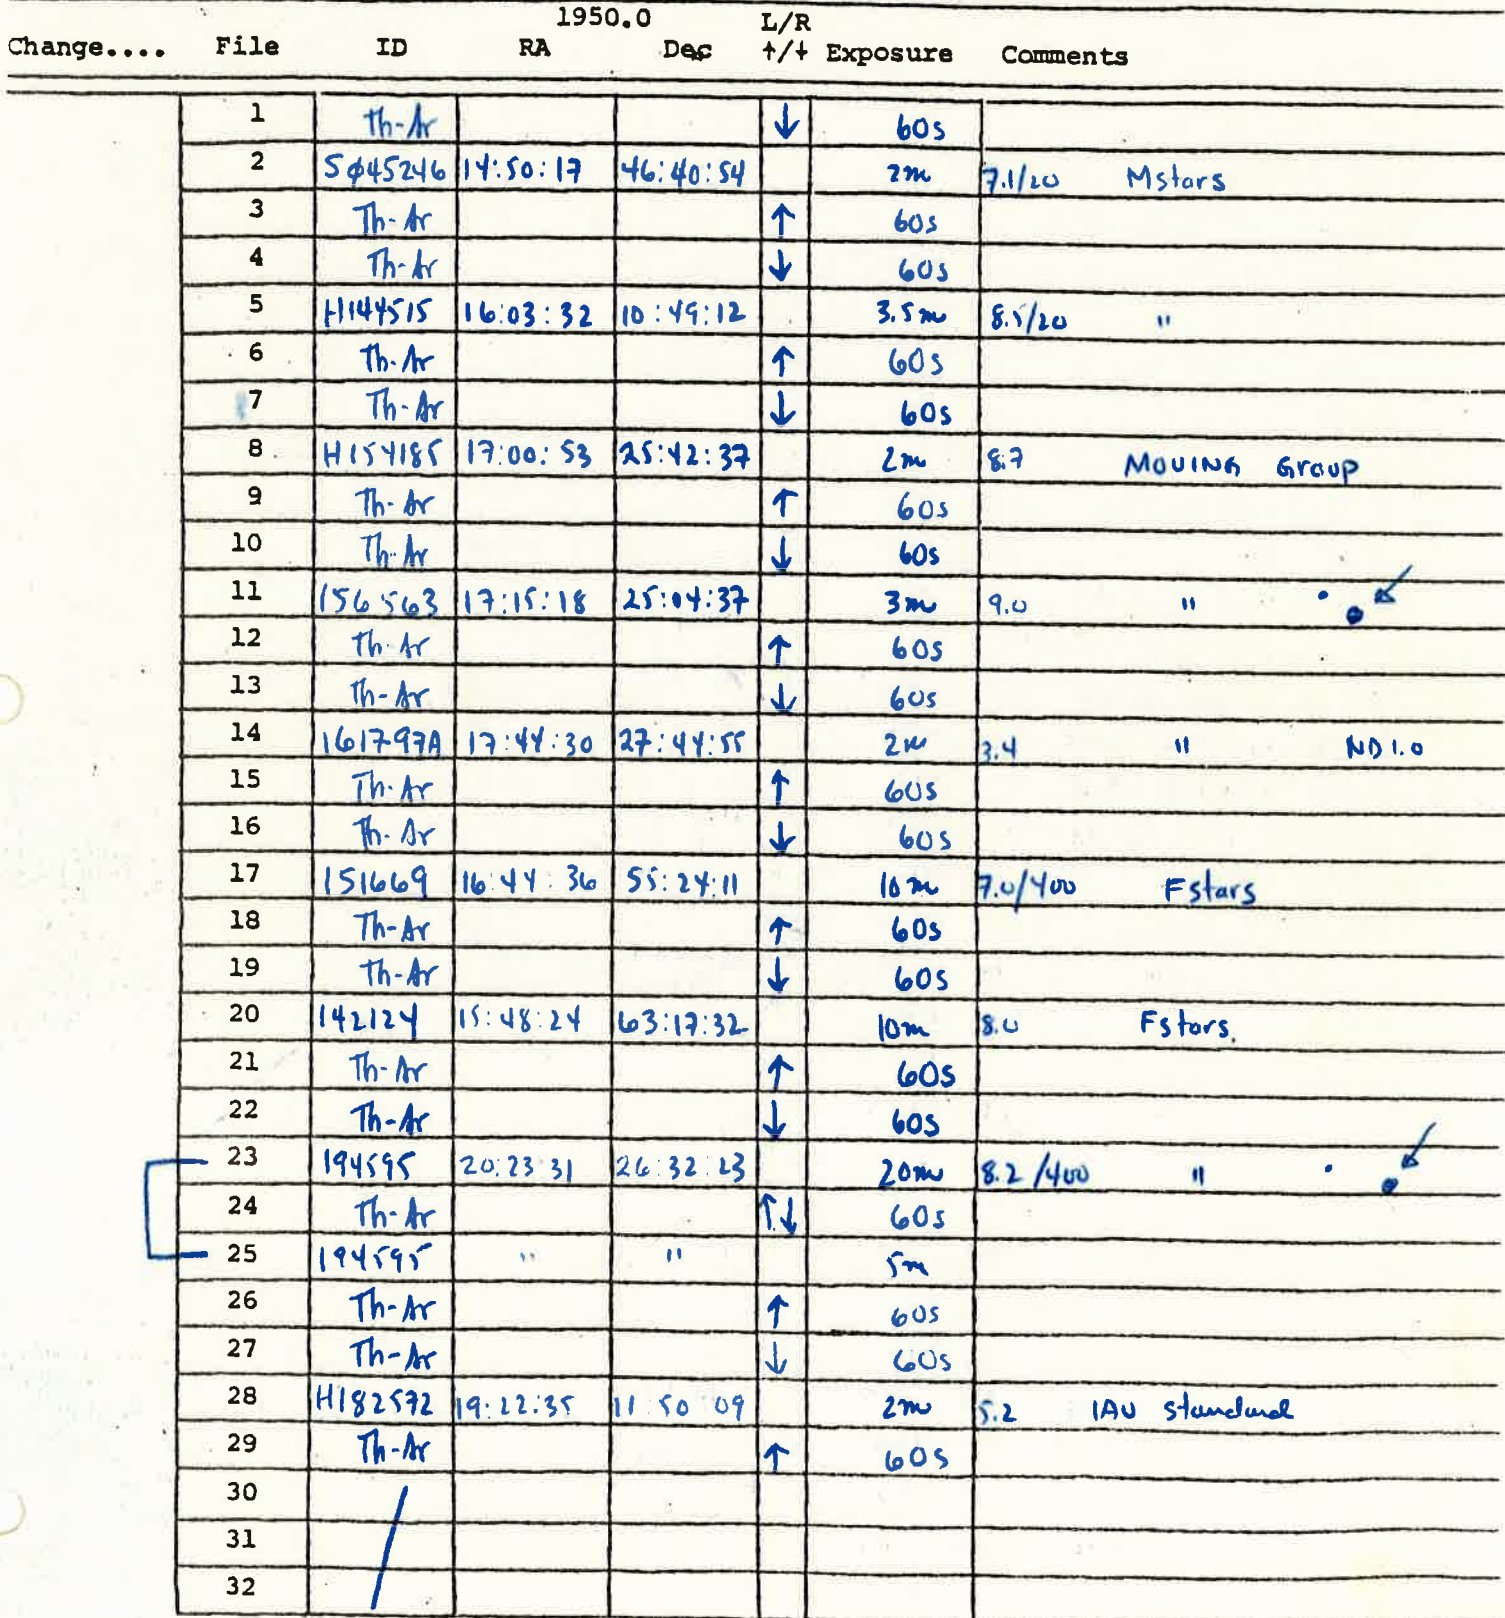 1950.0 L/R
Change.... File ID RA Dec ↑/↓ Exposure Comments
1 Th-Ar ↓ 60s
2 Sφ45246 14:50:17 46:40:54 2m 7.1/20 Mstars
3 Th-Ar ↑ 60s
4 Th-Ar ↓ 60s
5 H144515 16:03:32 10:49:12 3.5m 8.5/20 "
6 Th-Ar ↑ 60s
7 Th-Ar ↓ 60s
8 H154185 17:00:53 25:42:37 2m 8.7 MOVING Group
9 Th-Ar ↑ 60s
10 Th-Ar ↓ 60s
11 156563 17:15:18 25:04:37 3m 9.0 "
12 Th-Ar ↑ 60s
13 Th-Ar ↓ 60s
14 161797A 17:44:30 27:44:55 2m 3.4 " ND 1.0
15 Th-Ar ↑ 60s
16 Th-Ar ↓ 60s
17 151669 16:44:36 55:24:11 10m 7.0/400 Fstars
18 Th-Ar ↑ 60s
19 Th-Ar ↓ 60s
20 142124 15:48:24 63:17:32 10m 8.0 Fstars.
21 Th-Ar ↑ 60s
22 Th-Ar ↓ 60s
23 194595 20:23 31 26:32:23 20m 8.2/400 "
24 Th-Ar ↑↓ 60s
25 194595 " " 5m
26 Th-Ar ↑ 60s
27 Th-Ar ↓ 60s
28 H182572 19:22:35 11 50 09 2m 5.2 IAU standard
29 Th-Ar ↑ 60s
30
31
32